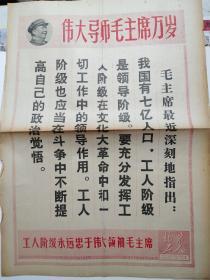 伟大导师毛主席万岁
毛主席最近深刻地指出：
我国有七亿人口，工人阶级
是领导阶级。要充分发挥工
人阶级在文化大革命中和一
切工作中的领导作用。工人
阶级也应当在斗争中不断提
高自己的政治觉悟。
工人阶级永远忠于伟大领袖毛主席